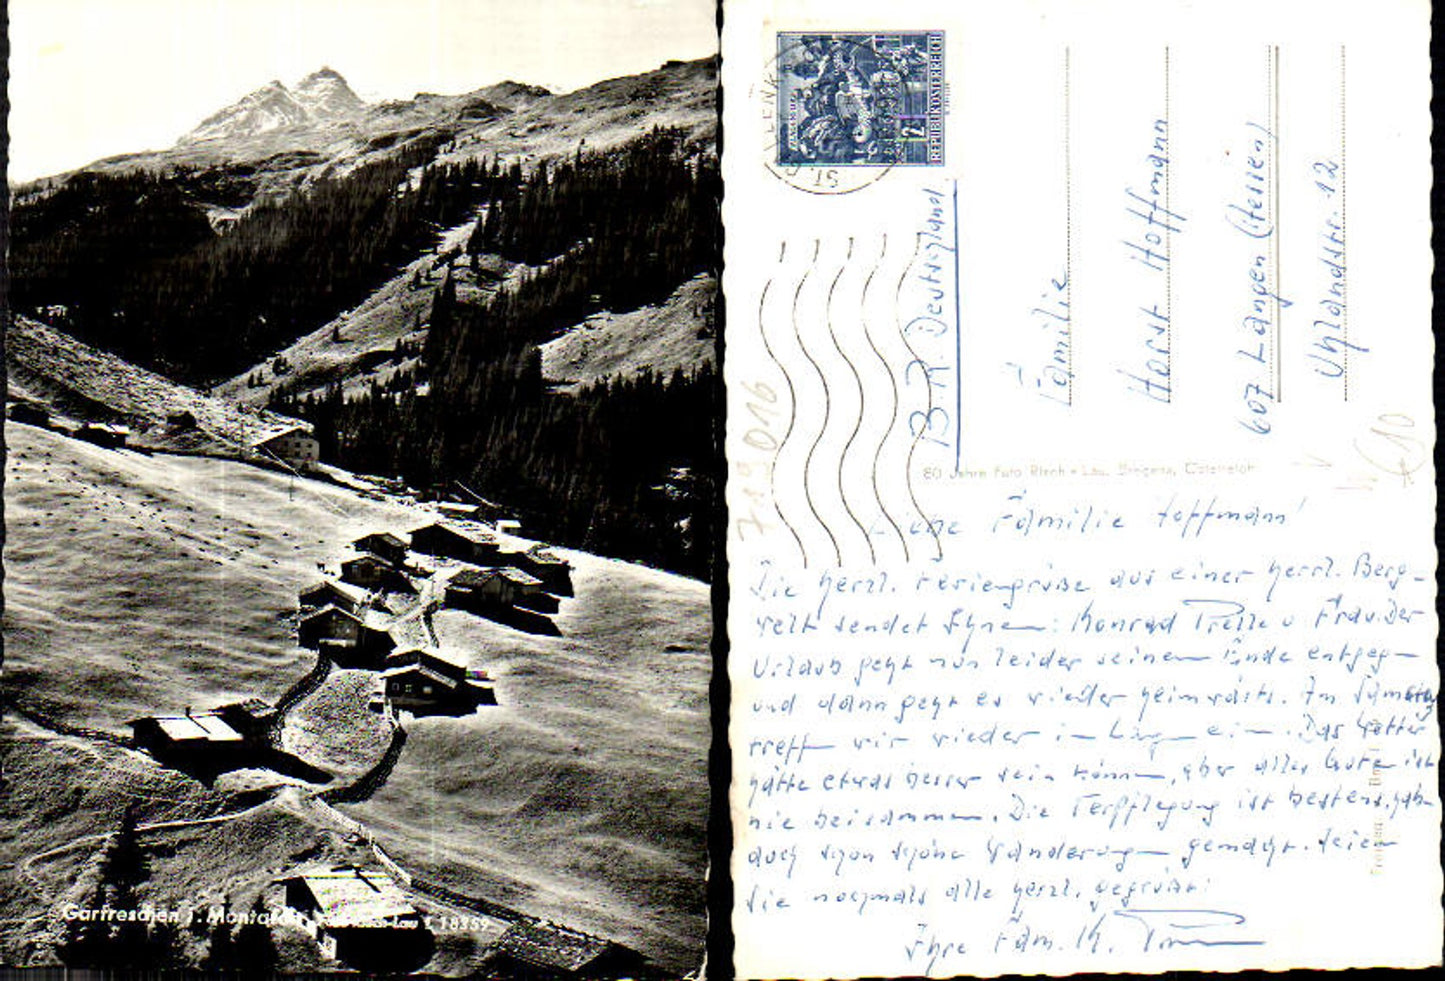 Garfreschen i. Montafon
L 18359
REPUBLIK ÖSTERREICH
2
ST. GALLENK
B. R. Deutschland
Familie
Horst Hoffmann
607 Langen (Hessen)
Uhlandstr. 12
€10
719016
80 Jahre Foto Risch-Lau, Bregenz, Österreich
Liebe Familie Hoffmann!
Die herzl. Feriengrüße aus einer herrl. Berg-
welt sendet Ihnen: Konrad u. Frau. Der
Urlaub geht nun leider seinem Ende entgeg-
und dann geht es wieder heimwärts. Am Samstag
treffen wir wieder in Langen ein. Das Wetter
hätte etwas besser sein können, aber alles Gute ist
nie beisammen. Die Verpflegung ist bestens, hab-
auch schon schöne Wanderungen gemacht. Seien
Sie nochmals alle herzl. gegrüßt!
Ihre Fam. K.